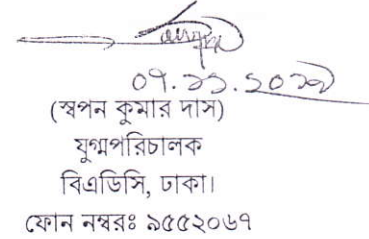 (স্বপন কুমার দাস)
যুগ্মপরিচালক
বিএডিসি, ঢাকা।
ফোন নম্বরঃ ৯৫৫২০৬৭